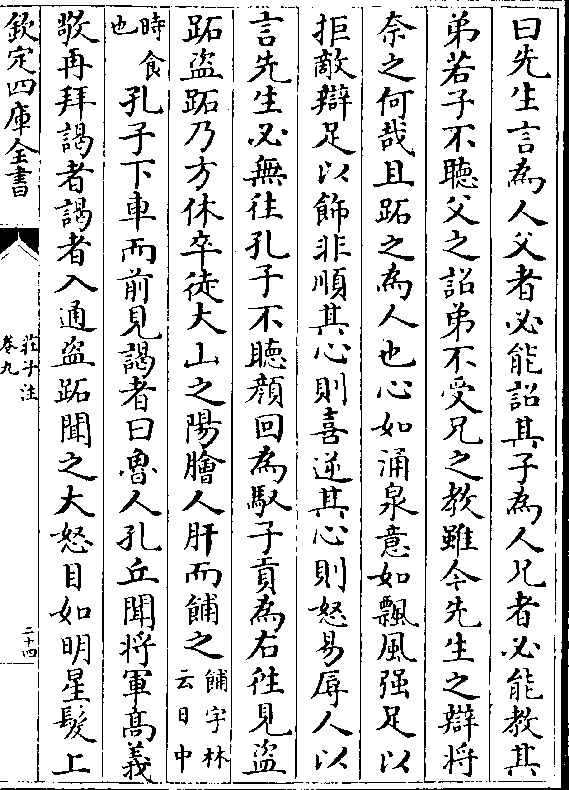 曰先生言為人父者必能詔其子為人兄者必能教其
弟若子不聽父之詔弟不受兄之教雖今先生之辯將
奈之何哉且跖之為人也心如涌泉意如飄風强足以
拒敵辯足以飾非順其心則喜逆其心則怒易辱人以
言先生必無徃孔子不聽顔回為馭子貢為右徃見盗
跖盗跖乃方休卒徒大山之陽膾人肝而餔之餔字林云日中
時食也孔子下車而前見謁者曰魯人孔丘聞将軍髙義
敬再拜謁者謁者入通盗跖聞之大怒目如明星髮上
欽定四庫全書
莊子注
卷九
二十四